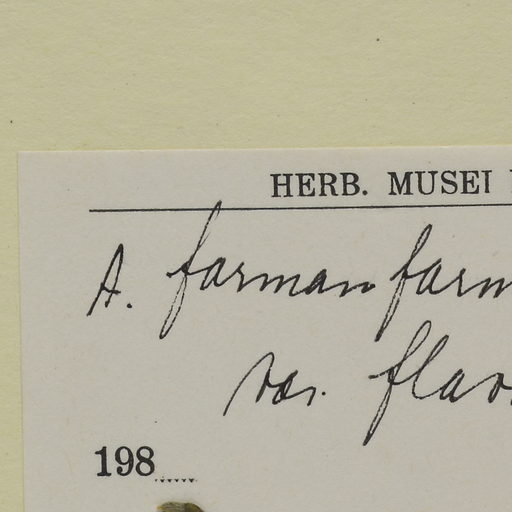 HERB. MUSEI
A. farman farm
var. flav
198